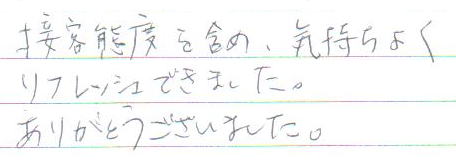 接客態度を含め、気持ちよく
リフレッシュできました。
ありがとうございました。